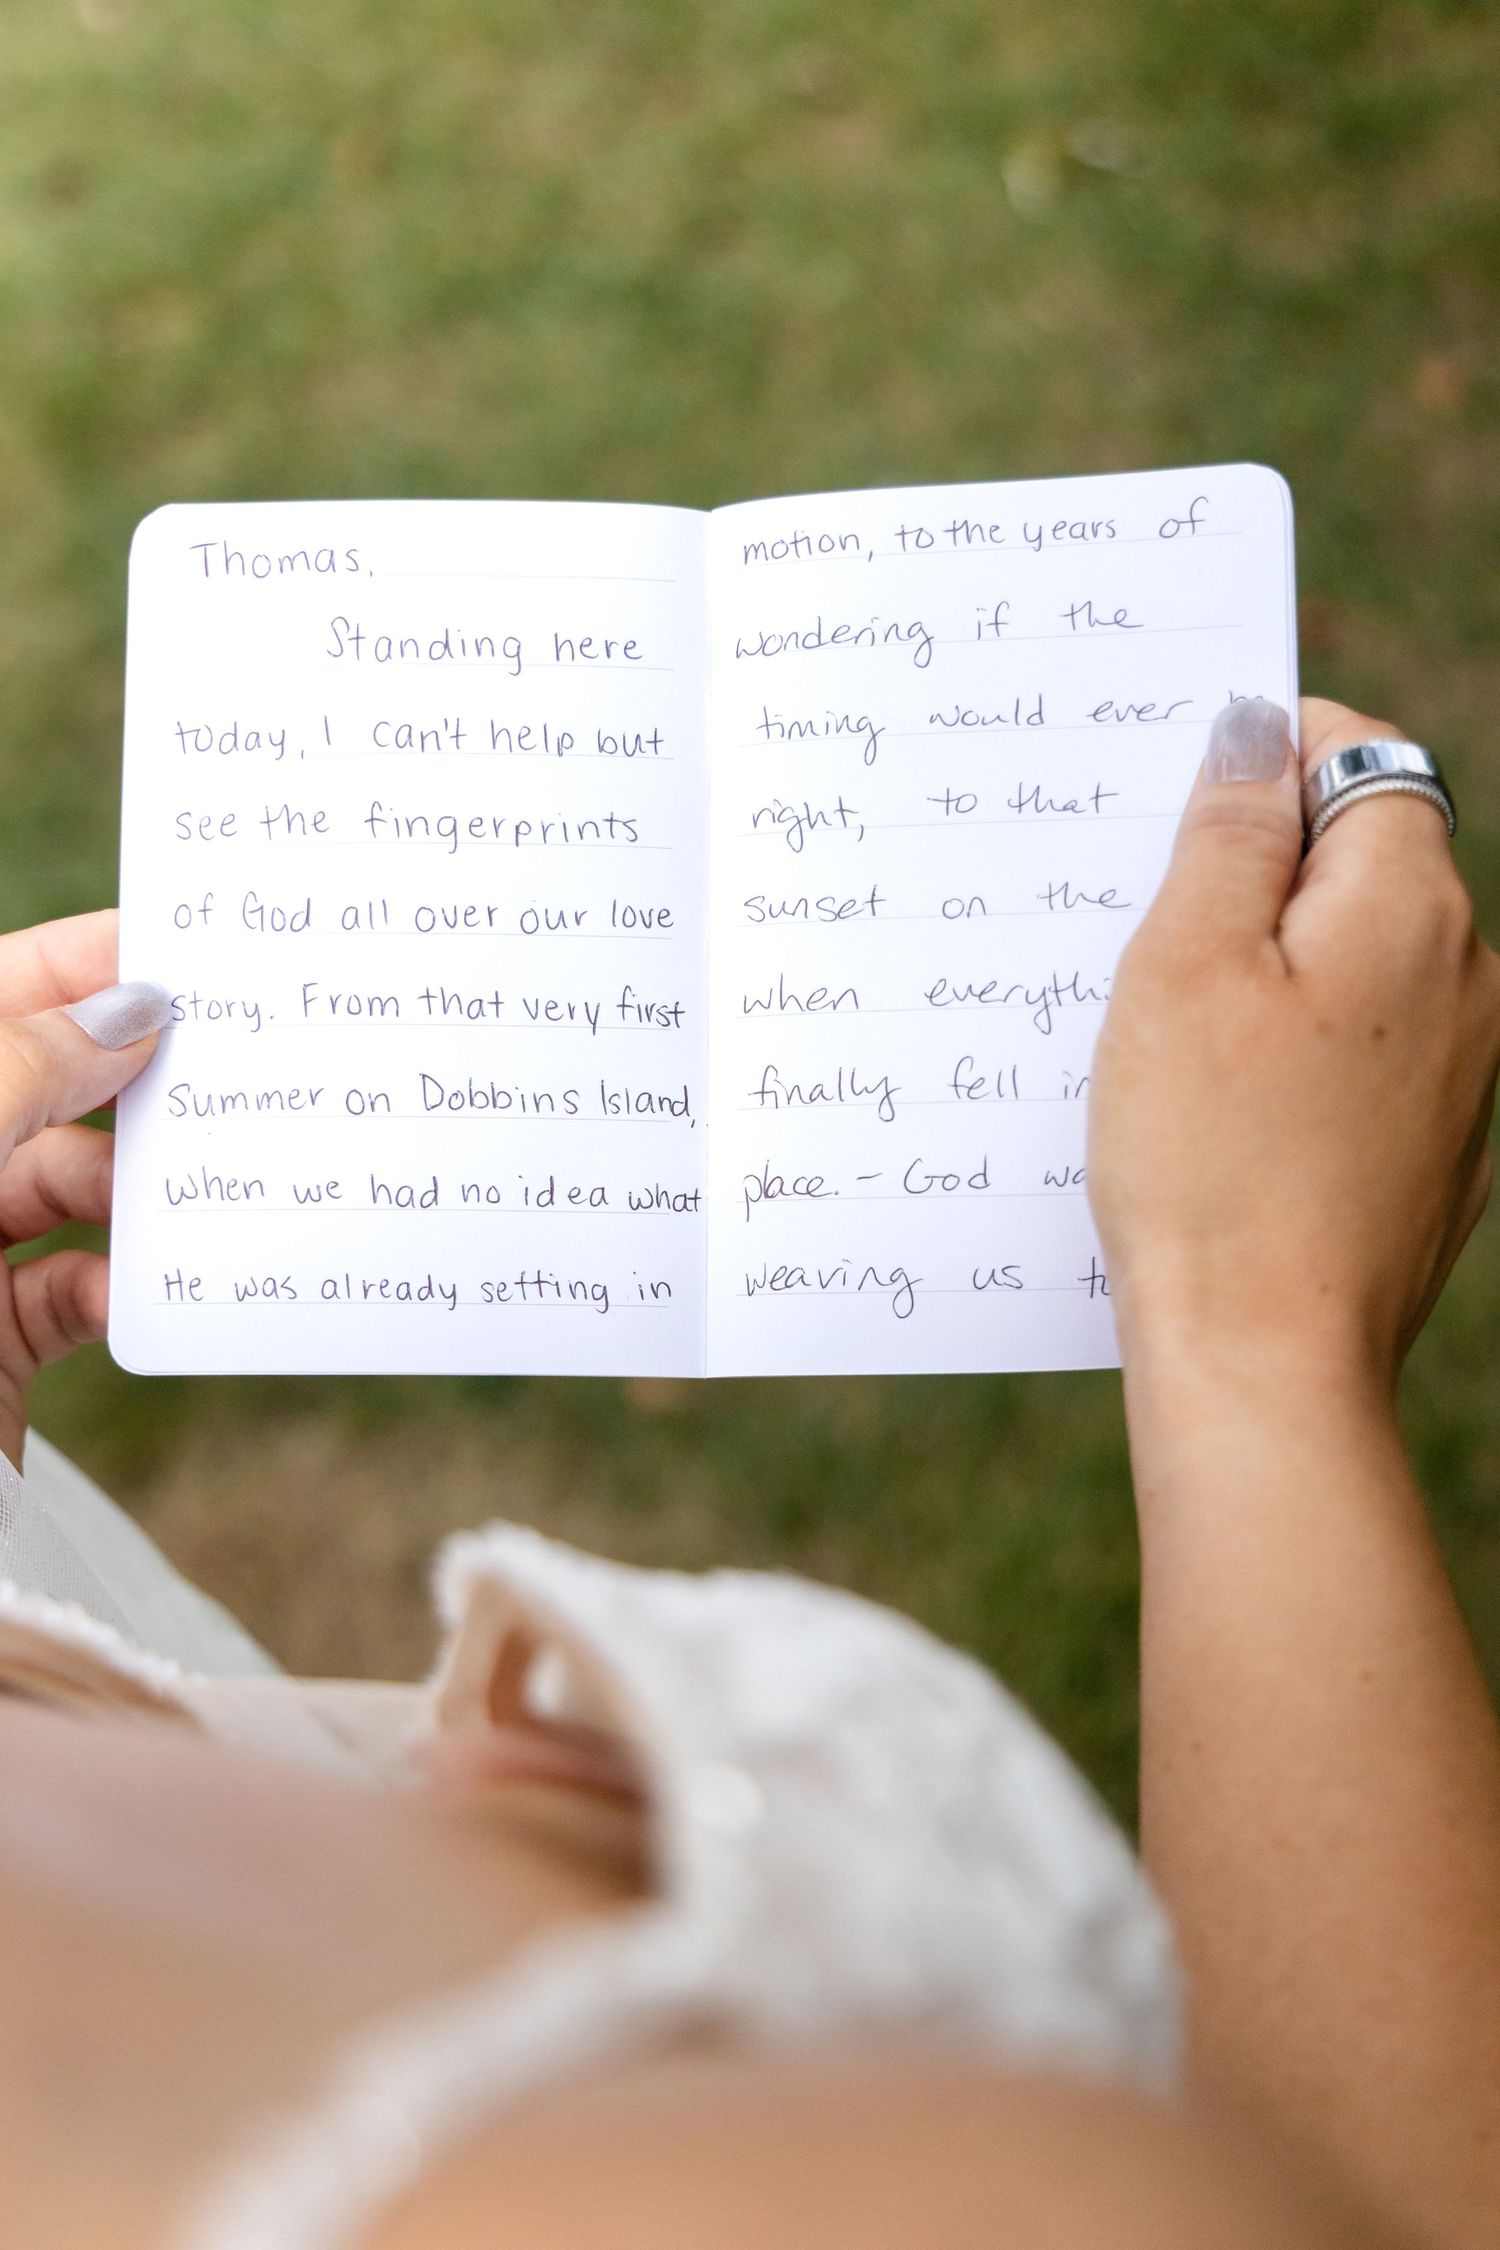 Thomas,
Standing here
today, I can't help but
see the fingerprints
of God all over our love
story. From that very first
Summer on Dobbins Island,
when we had no idea what
He was already setting in
motion, to the years of
wondering if the
timing would ever
right, to that
sunset on the
when
finally fell
place. - God
weaving us